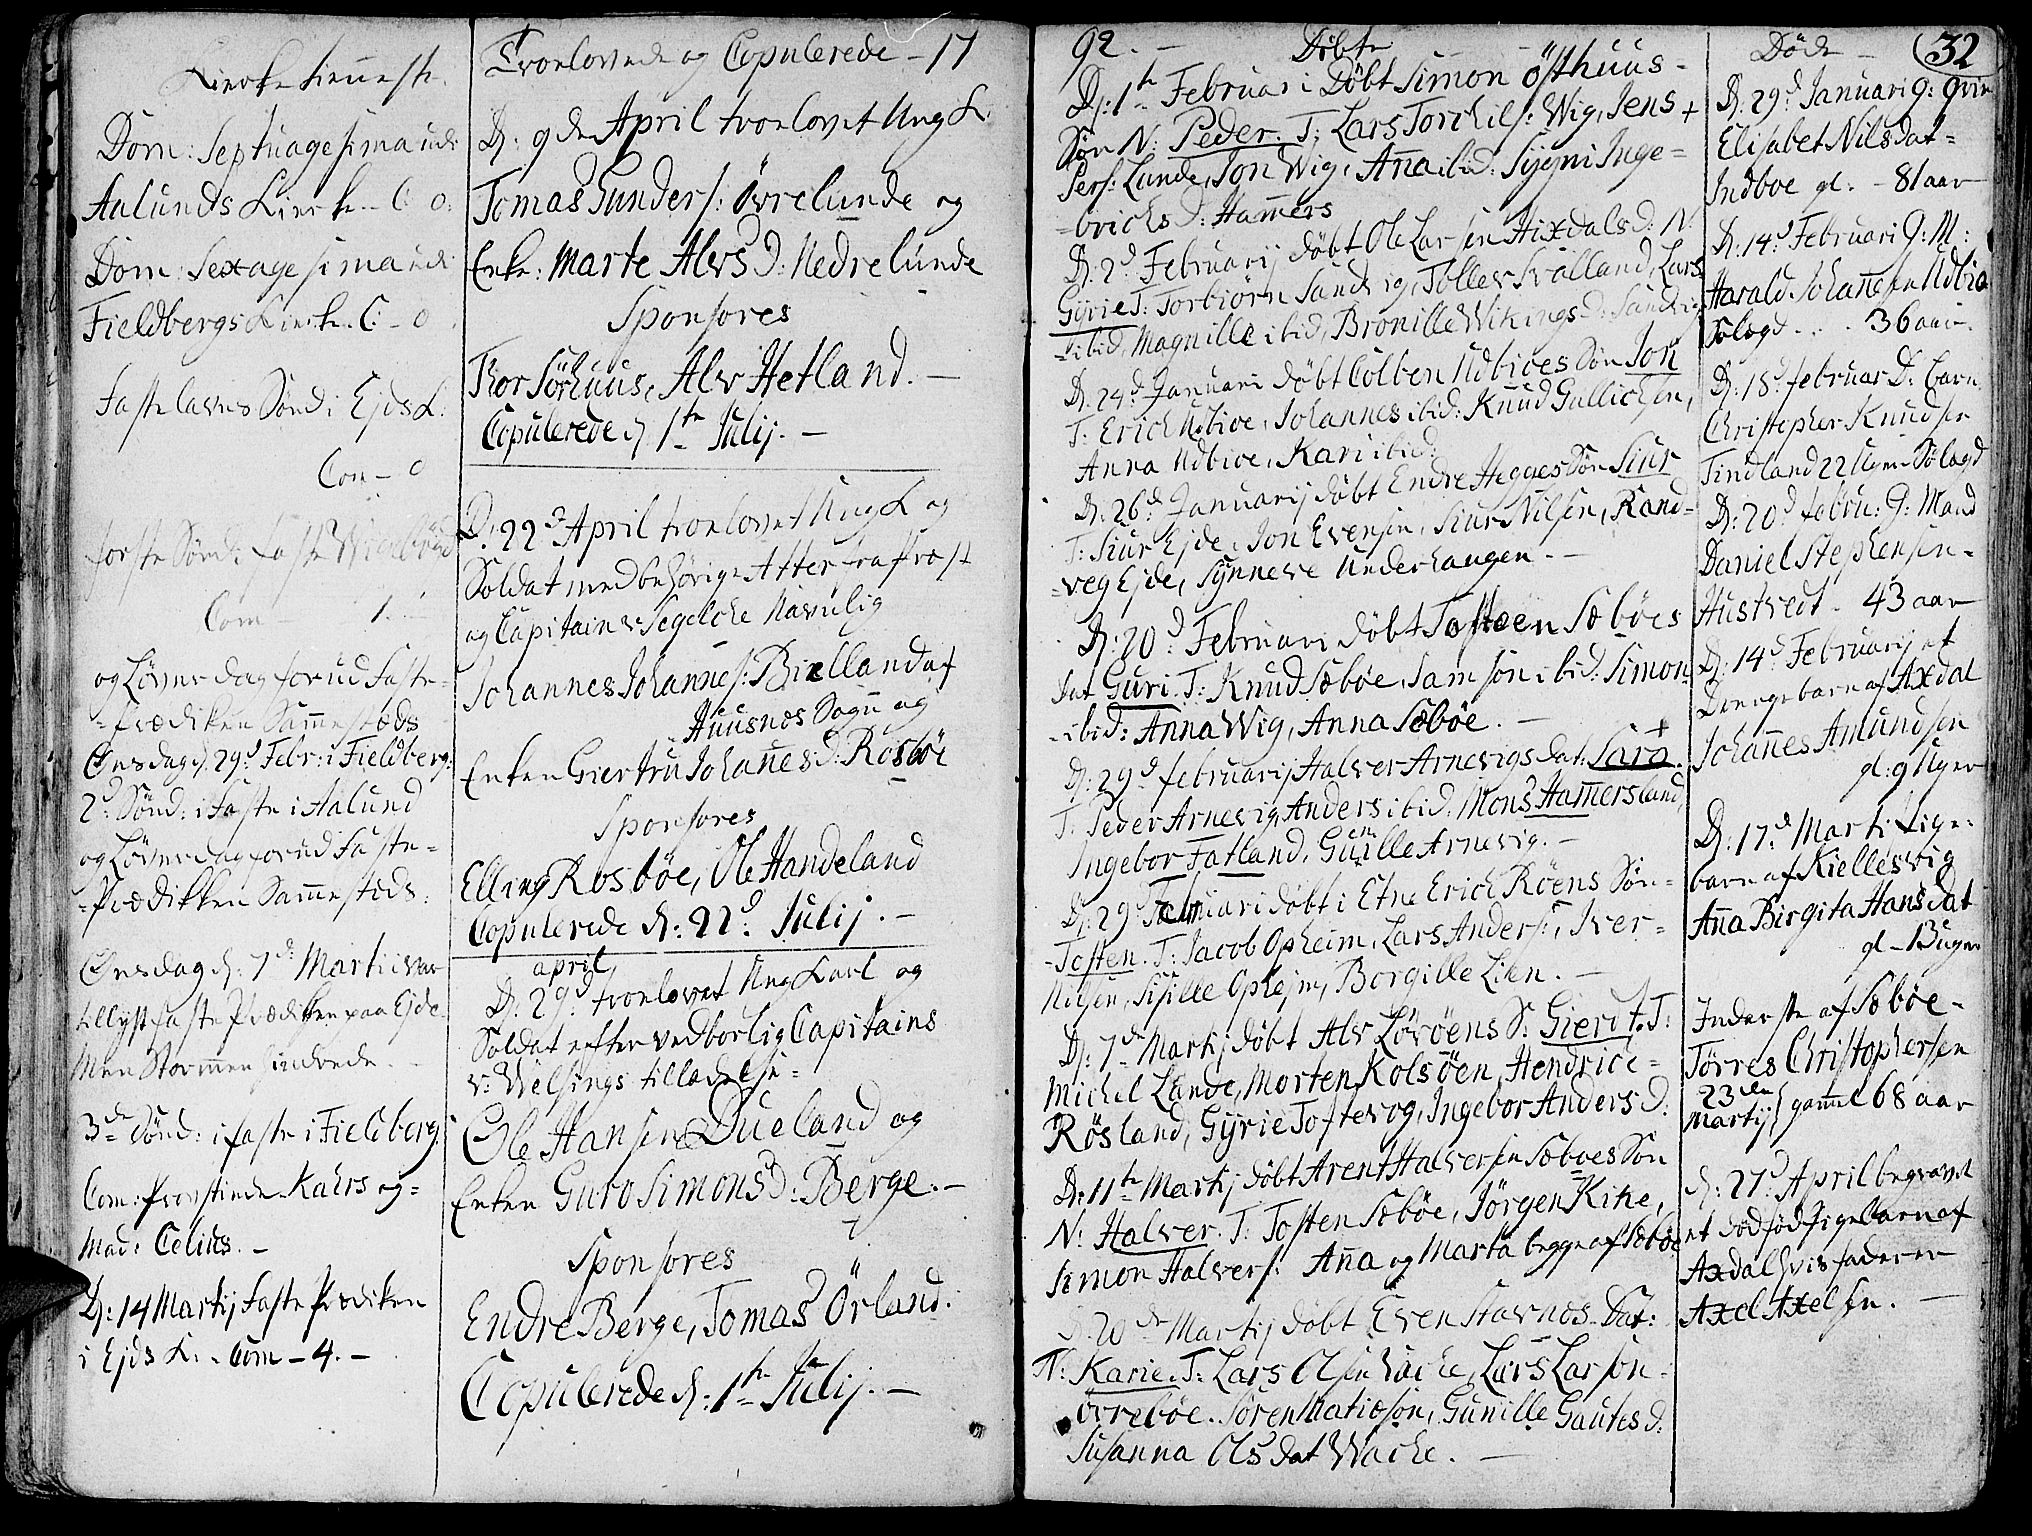 Kirke tieneste.
Dom: Septuagesima udi
Aalunds Kirke – C: 0:
Dom: Sexagesima udi
Fieldbergs Kirke. C: – 0.
Fastelavns Sønd: i Ejds K:
Com – 0
første Sønd: i faste
Com – 1.
og Løverdag forud Faste-
-prædiken Sam̄estæds
Onsdag d: 29d Febr: i Fieldberg:
2d Sønd: i Faste i Aalund
og Løverdag forud Faste-
-Prædikken Sam̄estæds:
Onsdag d: 7de Marti var
tillyst faste Prædiken paa Ejde
Men Stormen hindrede.
3de Sønd: i faste i Fieldberg:
Com: Provstinde Kahrs og-
Mad: Celius. –
D: 14 Martij Faste Prædiken
i Ejds K: – Com – 4. –
Troelovede og Copulerede – 17
D: 9de April troelovet Ung K:
Tomas Gunders: Øvrelunde og
Enke: Marte Alvs D: Nedrelunde
Sponsores
Thor Sørhuus, Alv Hetland. –
Copulerede d: 1te Julij. –
D: 22d April troelovet Ung K og
Soldat med behørige Atter fra Provst
og Capitain v Segelche Navnlig
Johannes Johannes: Bielland af
Huusnes Sogn og
Enken Giertru Johan̄es D: Rosbøe
Sponsores
Elling Rosbøe, Ole Handeland
Copulerede d: 22d Julij. –
april
D: 29d troelovet Ung Karl og
Soldat efter vedborlig Capitains
v: Welsings tilladelse –
Ole Hansen Dueland og
Enken Guro Simons D: Berge. –
Sponsores
Endre Berge, Tomas Ørland.
Copulerede d: 1te Julij. –
92. – Døbte –
D: 1te Februari Døbt Simon Østhuus-
Søn N: Peder. T: Lars Torchils: Wig, Jens +
Pers: Lunde, Jon Wig, An̄a ibid: Sygni Inge-
-brichs D: Ham̄ers
D: 2d Februarij døbt Ole Larsen Aixdals D: N:
Gyrie T: Torbiørn Sandvig, Tollev Svalland, Lars
-ibid, Magnille ibid, Bronille Wikings D: Sandvig
D: 24d Januari døbt Colben Udbioes Søn Jon
T: Erich Udbioe, Johannes ibid: Knud Gullichsen,
Anna Udbioe, Kari ibid:
D: 26d Januarij døbt Endre Hegnes Søn Siur
T: Siur Ejde, Jon Evensen, Siur Nilsen, Rand-
-veg Ejde, Synneve Underhaugen. –
D: 20d Februari døbt Tosteen Sæbøes
Dat Guri. T: Knud Sæbøe, Samson ibid: Simon
-ibid: Anna Wig, Anna Sæbøe. –
D: 29d februarij Halver Arnevigs Dat: Sara.
T: Peder Arnevig, Anders ibid: Mons Ham̄ersland,
Ingebor Fatland, Gunille Arnevig. –
D: 29d Februari døbt i Etne Erich Røens Søn-
-Tosten. T: Jacob Opheim, Lars Anders:, Iver-
Nilsen, Sisille Ophejm, Borgille Lien. –
D: 7de Martij døbt Alv Lørøens S: Giert. T:
Michel Lande, Morten Kolsøen, Hendrice-
Røsland, Gyrie Toftevog, Ingebor Anders D:
D: 11te Martij døbt Arent Halversen Sæboes Søn
N: Halver. T: Tosten Sæbøe, Jørgen Kike,
Simon Halvers: An̄a og Marta begge af Sæbøe
D: 20de Martij døbt Even Stavnes Dat:
N: Karie. T: Lars Olsen Wache, Lars Larson-
Øvrebøe. Søren Matiøson, Gunille Gautes D:
Susanna Ols dat Wache. –
Døde – 32
D: 29d Januari G: Qvin
Elisabet Nils dat-
Indboe gl: – 81 aar
D: 14d Februari G: M:
Harald Johan̄esen Udbio
Sølagd. . . 36 aar.
D: 18d februar D: Barn
Christopher Knudsen
Tindland 22 Uger Sølagd
D: 20d febru: G: Mand
Daniel Stephensen-
Hustvedt – 43 aar
D: 14d Februarij et
Drengebarn af Axdal
Johan̄es Amundsen
gl: 9 Uger
D: 17d Marti Pige-
barn af Kiellesvig
An̄a Birgita Hans dat
gl – 13 uger
Inderste af Sæbøe-
Tørres Christophersen
23de
Martij gam̄el 68 aar
d: 27d April begravet
et dødfød Pigebarn af
Axdal hvis fader er
Axel Axelsen. –